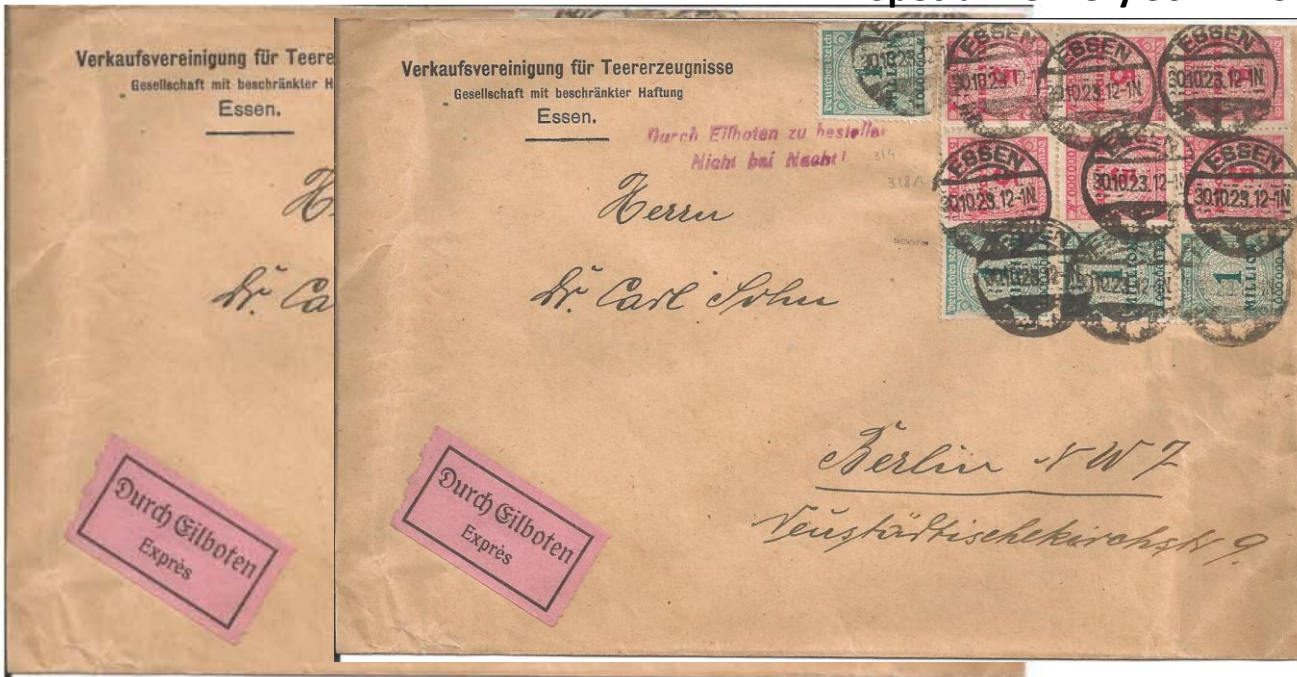 Verkaufsvereinigung für Teere
Gesellschaft mit beschränkter H
Essen.
Dr. Ca
Durch Eilboten
Exprès
Verkaufsvereinigung für Teererzeugnisse
Gesellschaft mit beschränkter Haftung
Essen.
Durch Eilboten zu bestelle
Nicht bei Nacht!
314
318A
Herrn
Dr. Carl Sohn
Berlin NW 7
Neustädtischekirchstr 9.
Durch Eilboten
Exprès
Deutsches Reich
1
MILLION
ESSEN
30.10.23.12-1N
5
ESSEN
30.10.23.12-1N
5
ESSEN
30.10.23.12-1N
5
ESSEN
30.10.23.12-1N
5
30.10.23.12-1N
5
ESSEN
30.10.23.12-1N
5
Deutsches Reich
1
MILLION
1
MILLION
1
MILLION